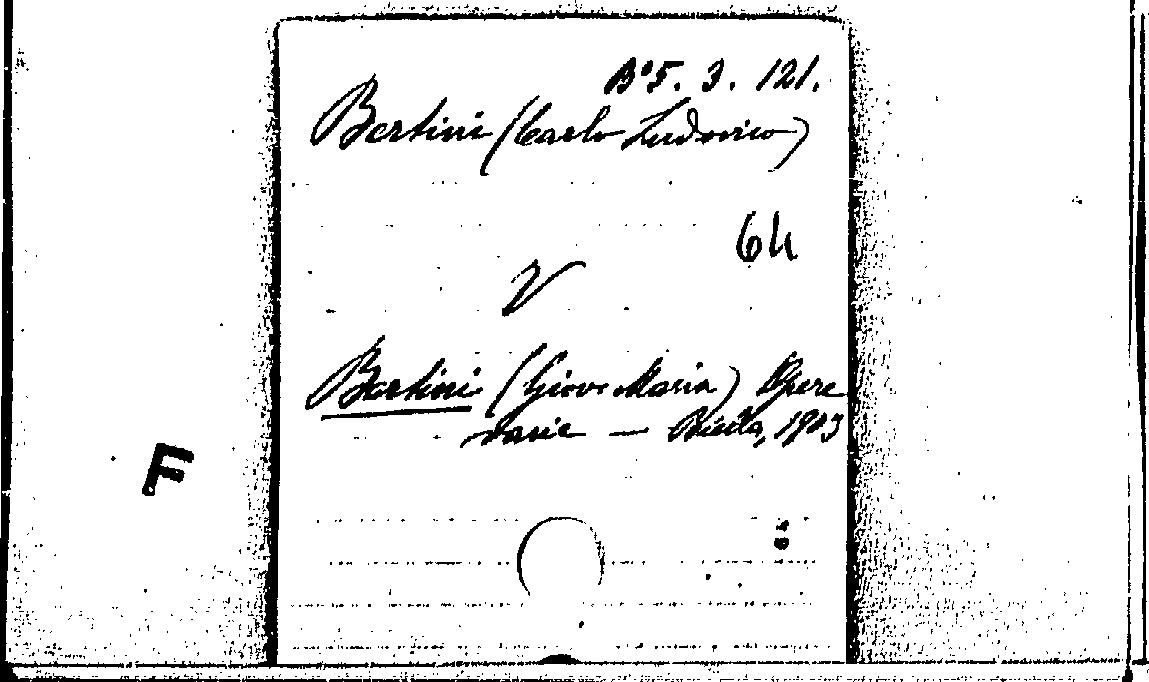 B° 5. 3. 121.
Bertini (Carlo Ludovico)
64
V
Bertini (Giov. Maria) Opere
varie — Biella, 1903
F
64